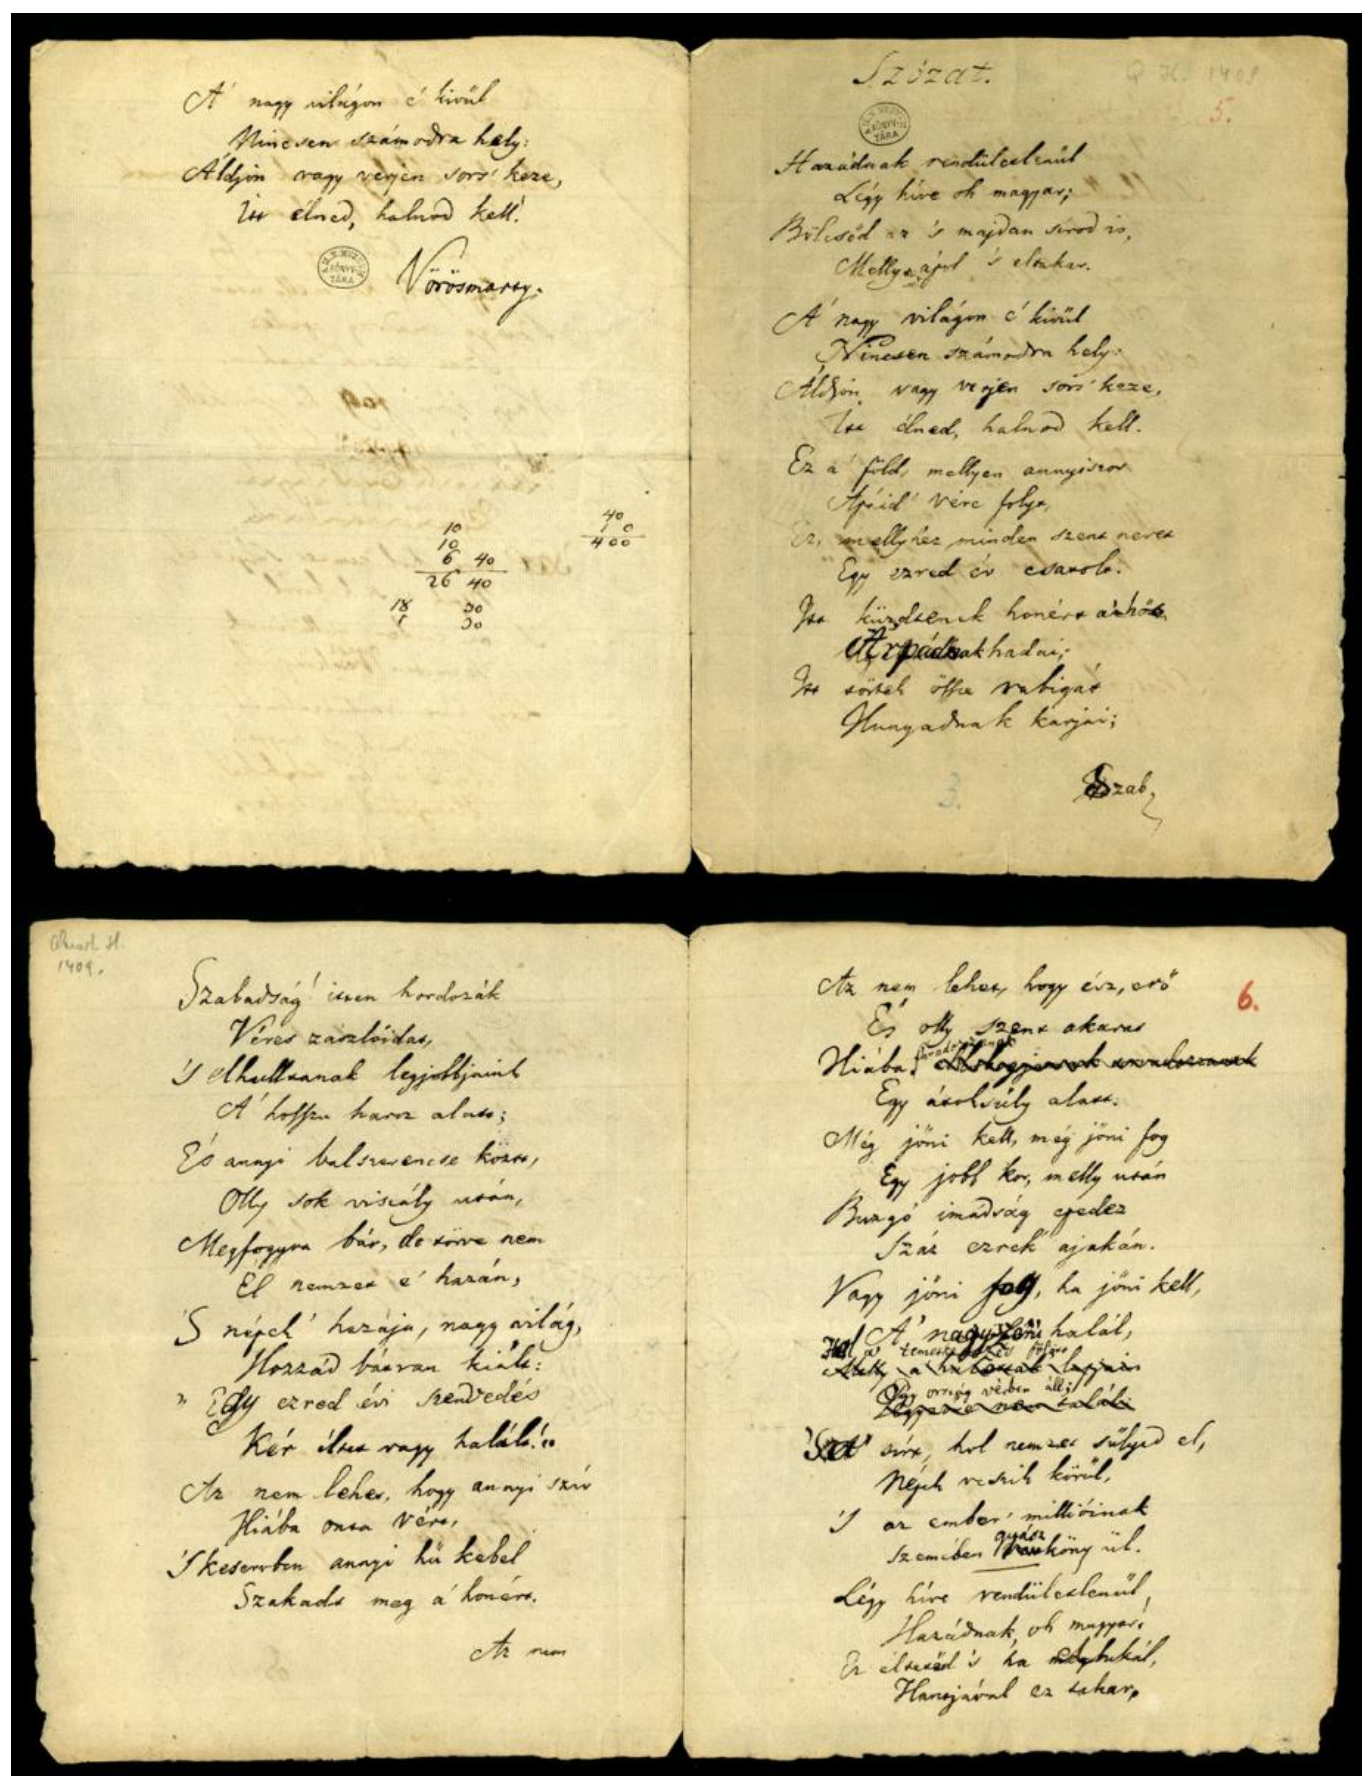 A' nagy világon e' kivül
Nincsen számodra hely:
Áldjon vagy verjen sors' keze,
Itt élned, halnod kell.
M. N. MUZEUM KÖNYVTÁRA
Vörösmarty.
10
10
6 40
26 40
18 30
30
40
10
400
Szózat.
Q H. 1409
5.
M. N. MUZEUM KÖNYVTÁRA
Hazádnak rendületlenűl
Légy híve oh magyar;
Bölcsőd az 's majdan sírod is,
Melly ápol 's eltakar.
A' nagy világon e' kivűl
Nincsen számodra hely:
Áldjon, vagy verjen sors' keze,
Itt élned, halnod kell.
Ez a' föld, mellyen annyiszor
Apáid' vére folyt,
Ez, mellyhez minden szent nevet
Egy ezred év csatolt.
Itt küzdtenek honért a' hős
Árpádnak hadai;
Itt törtek össze rabigát
Hunyadnak karjai;
3.
Szab,
Quart H.
1409.
Szabadság! itten hordozák
Véres zászlóidat,
'S elhulltanak legjobbjaink
A' hosszu harcz alatt;
És annyi balszerencse közt,
Olly sok viszály után,
Megfogyva bár, de törve nem
Él nemzet e' hazán,
'S népek' hazája, nagy világ,
Hozzád bátran kiált:
„Egy ezred évi szenvedés
Kér éltet vagy halált!"
Az nem lehet, hogy annyi szív
Hiába onta vért,
'S keservben annyi hű kebel
Szakadt meg a' honért.
Az nem
6.
Az nem lehet, hogy ész, erő
És olly szent akarat
Hiába sorvadozzanak
Egy átoksúly alatt.
Még jőni kell, még jőni fog
Egy jobb kor, melly után
Buzgó imádság epedez
Száz ezrek' ajakán.
Vagy jőni fog, ha jőni kell,
A' nagyszerű halál,
Hol a' temetkezés fölött
Egy ország vérben áll;
'S a' sírt, hol nemzet sűlyed el,
Népek veszik körűl,
'S az ember' millióinak
Szemében gyász köny űl.
Légy híve rendületlenűl,
Hazádnak, oh magyar:
Ez éltetőd 's ha elbukál,
Hantjával ez takar,